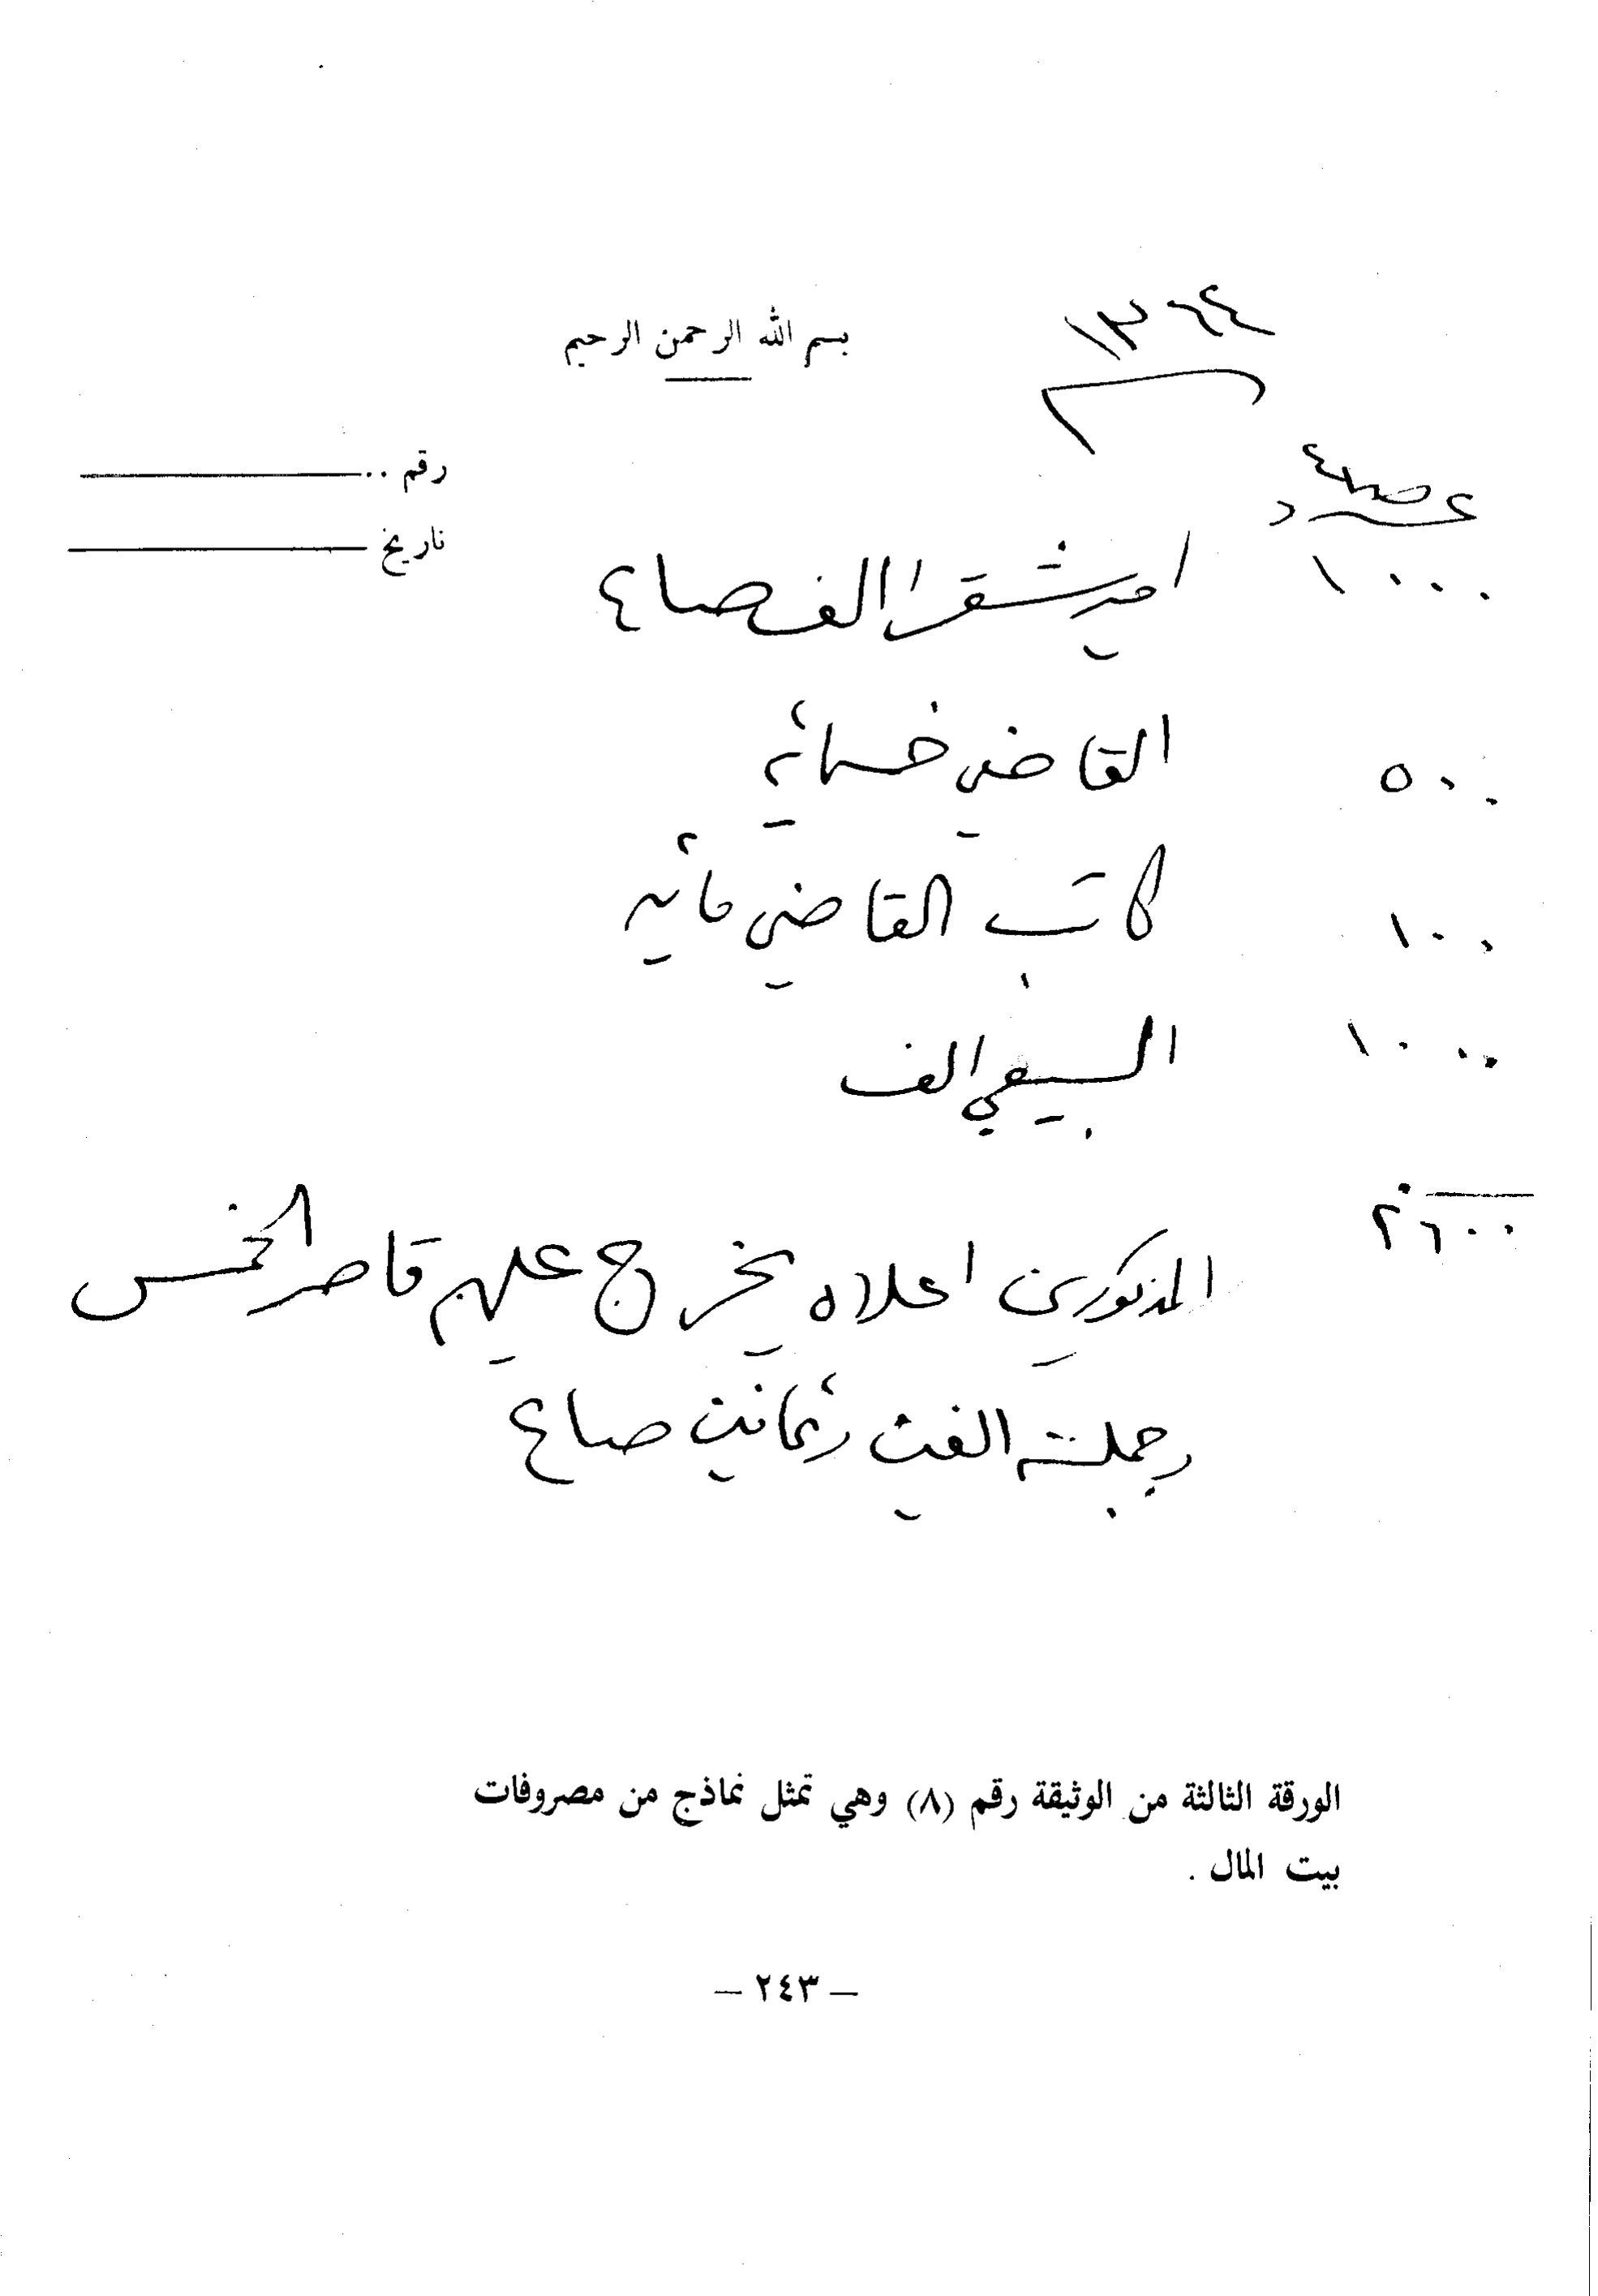 بسم الله الرحمن الرحيم
١٣٦٤
رقم ..
تاريخ
عدد صاع
١٠٠٠ امير شقرا الف صاع
٥٠٠ القاضي خسمائه
١٠٠ كاتب القاضي مائيه
١٠٠٠ السبيعي الف
٢٦٠٠
المذكورين اعلاه يخرج عليهم قاصر الخمس
وجملته الفين وثمانين صاع
الورقة الثالثة من الوثيقة رقم (٨) وهي تمثل نماذج من مصروفات
بيت المال .
— ٢٤٣ —